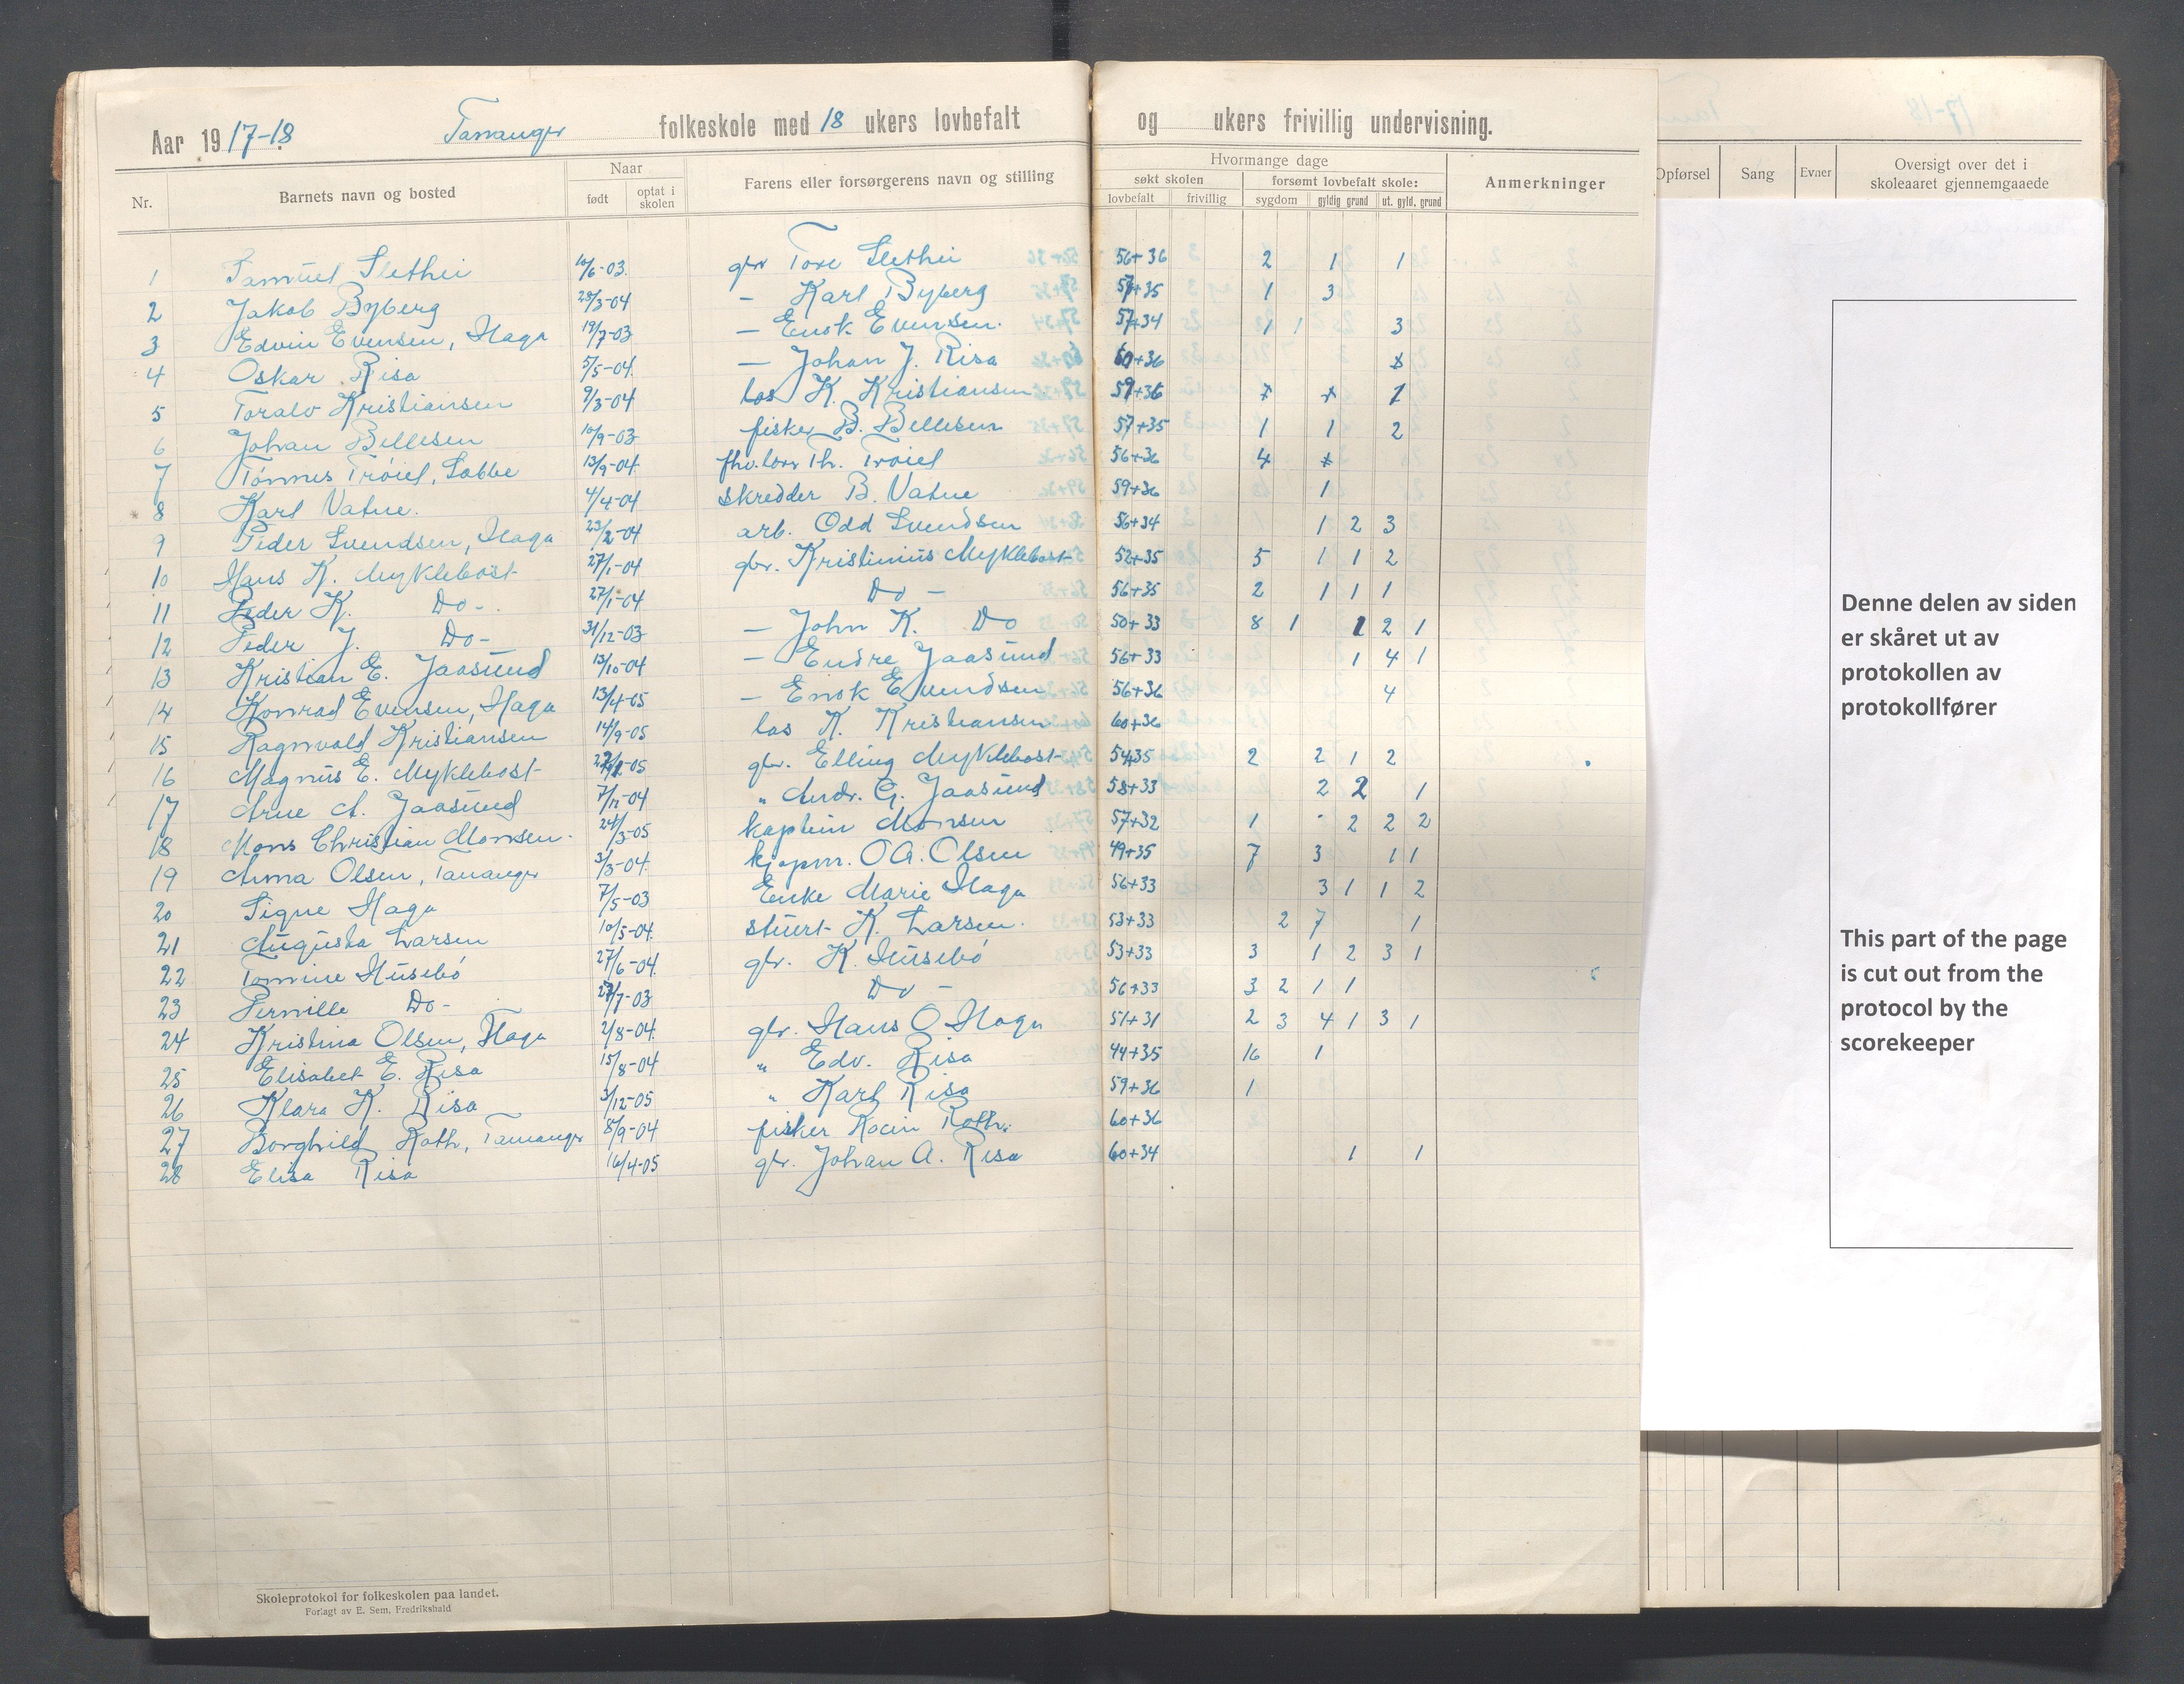 Aar 1917-18 Tananger folkeskole med 18 ukers lovbefalt og ukers frivillig undervisning.
Nr. Barnets navn og bosted Naar født optat i skolen Farens eller forsørgerens navn og stilling Hvormange dage søkt skolen lovbefalt frivillig forsømt lovbefalt skole: sygdom gyldig grund ut. gyld. grund Anmerkninger
Opførsel Sang Evner Oversigt over det i skoleaaret gjennemgaaede
1 Samuel Slethei 10/6-03 gbr Tore Slethei 56+36 2 1 1
2 Jakob Byberg 28/3-04 - Karl Byberg 57+35 1 3
3 Edvin Evensen, Haga 19/7-03 - Enok Evensen. 57+34 1 1 3
4 Oskar Risa 5/5-04. - Johan J. Risa 60+36
5 Toralv Kristiansen 9/3-04 los K. Kristiansen 59+36 1
6 Johan Bellesen 10/9-03 fisker B. Bellesen 57+35 1 1 2
7 Tönnes Tröiel, Sobbe 13/9-04 fhv. los Th. Tröiel 56+36 4
8 Karl Vatne. 4/4-04 skredder B. Vatne 59+36 1
9 Peder Svendsen, Haga 23/2-04 arb. Odd Svendsen 56+34 1 2 3
10 Hans K. Myklebost 27/1-04 gbr. Kristinius Myklebost 52+35 5 1 1 2
11 Peder K. Do-. 27/1-04 Do - 56+35 2 1 1 1
12 Peder J. Do- 31/12-03 - John K. Do 50+33 8 1 1 2 1
13 Kristian E. Jaasund 13/10-04 - Endre Jaasund 56+33 1 4 1
14 Konrad Evensen, Haga 13/4-05 - Enok Evendsen 56+36 4
15 Ragnvald Kristiansen 14/9-05 los K. Kristiansen 60+36
16 Magnus E. Myklebost -05 gbr. Elling Myklebost 54+35 2 2 1 2
17 Arne A. Jaasund 7/12-04 " Andr. G. Jaasund 58+33 2 2 1
18 Mons Christian Monsen 24/3-05 kaptein Monsen 57+32 1 2 2 2
19 Anna Olsen, Tananger 3/3-04. kjøpm. O A. Olsen 49+35 7 3 1 1
20 Signe Haga 7/5-03 Enke Marie Haga 56+33 3 1 1 2
21 Augusta Larsen 10/5-04. stuert K. Larsen. 53+33 2 7 1
22 Tomine Husebö 27/6-04. gbr. K. Husebö 53+33 3 1 2 3 1
23 Pernille Do- /7-03 Do - 56+33 3 2 1 1
24 Kristina Olsen, Haga 2/8-04. gbr. Hans O Haga 51+31 2 3 4 1 3 1
25 Elisabet E. Risa 15/8-04 " Edv. Risa 44+35 16 1
26 Klara K. Risa 3/12-05 " Karl Risa 59+36 1
27 Borghild Roth, Tananger 8/9-04 fisker Roth. 60+36
28 Elisa Risa 16/4-05 gbr. Johan A. Risa 60+34 1 1
Denne delen av siden
er skåret ut av
protokollen av
protokollfører
This part of the page
is cut out from the
protocol by the
scorekeeper
Skoleprotokol for folkeskolen paa landet.
Forlagt av E. Sem, Fredrikshald